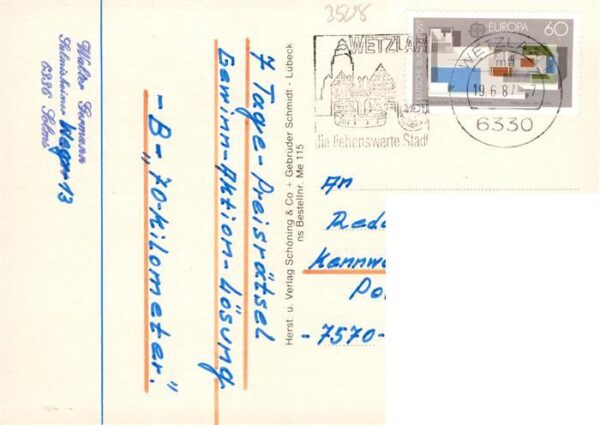 3508
Walter Germann
6336 Solms
Weg 13
7 Tage-Preisrätsel
Gewinn-Aktion-Lösung
- B - „70-Kilometer.“
Herst. u. Verlag Schöning & Co + Gebrüder Schmidt - Lübeck
ns Bestellnr. Me 115
WETZLAR
die sehenswerte Stadt
DEUTSCHE BUNDESPOST
EUROPA
60
WETZLAR
19.6.87
6330
An
Reda
Kennw
Po
- 7570-